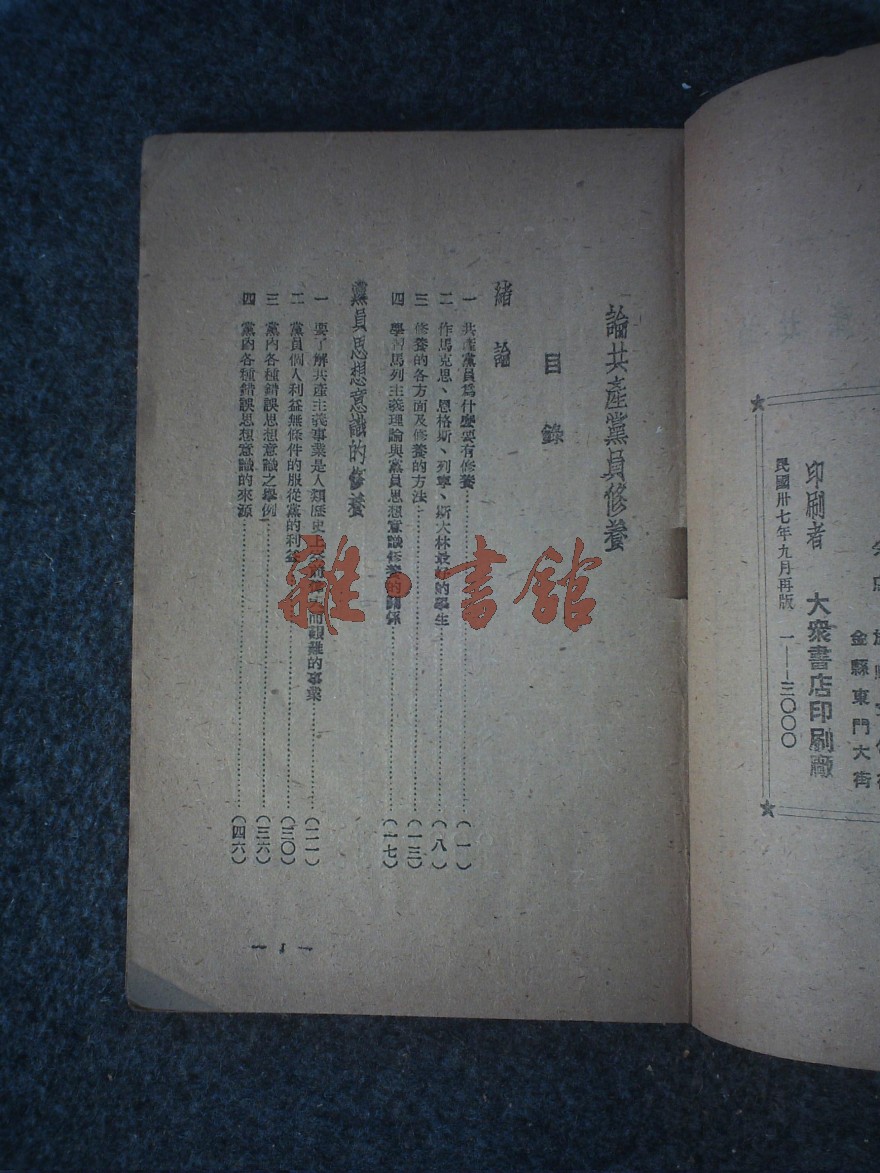 印刷者　大衆書店印刷廠
民國卅七年九月再版　一——三〇〇〇
金縣東門大街
論共產黨員修養
目錄
緒論
一　共產黨員爲什麼要有修養……(一)
二　作馬克思、恩格斯、列寧、斯大林最好的學生……(八)
三　修養的各方面及修養的方法……(一三)
四　學習馬列主義理論與黨員思想意識修養的關係……(一七)
黨員思想意識的修養
一　要了解共產主義事業是人類歷史上而艱難的事業……(二一)
二　黨員個人利益無條件的服從黨的利益……(三〇)
三　黨內各種錯誤思想意識之舉例……(三六)
四　黨內各種錯誤思想意識的來源……(四六)
— 1 —
雜·書館